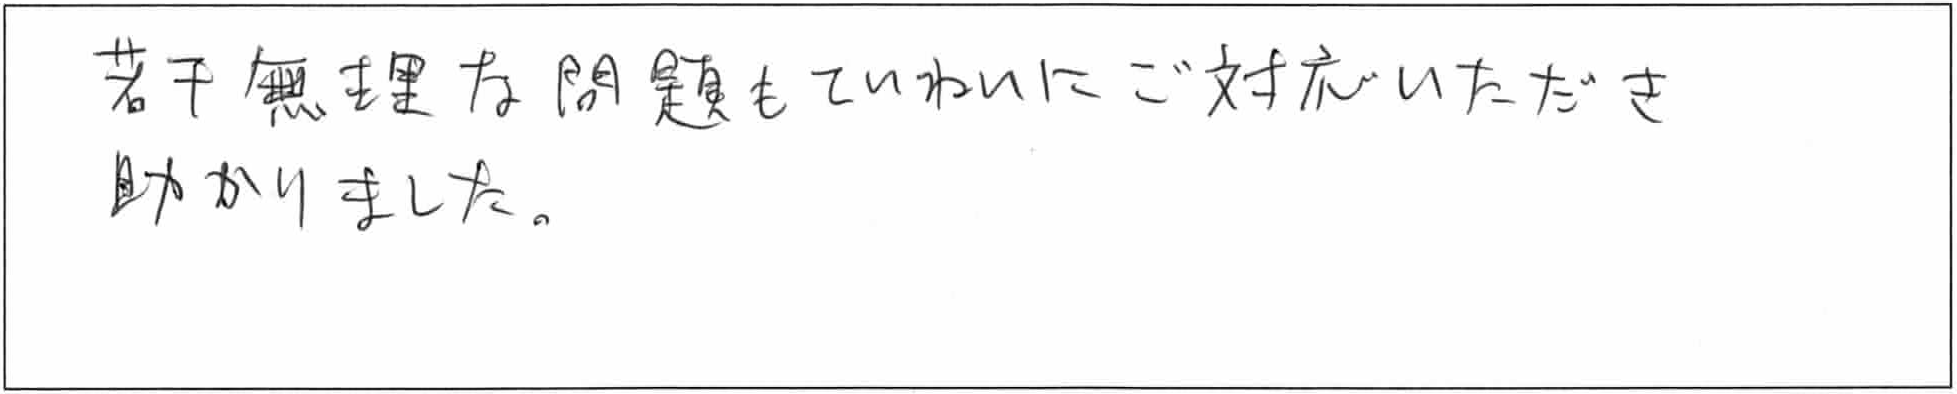 若干無理な問題もていねいにご対応いただき
助かりました。